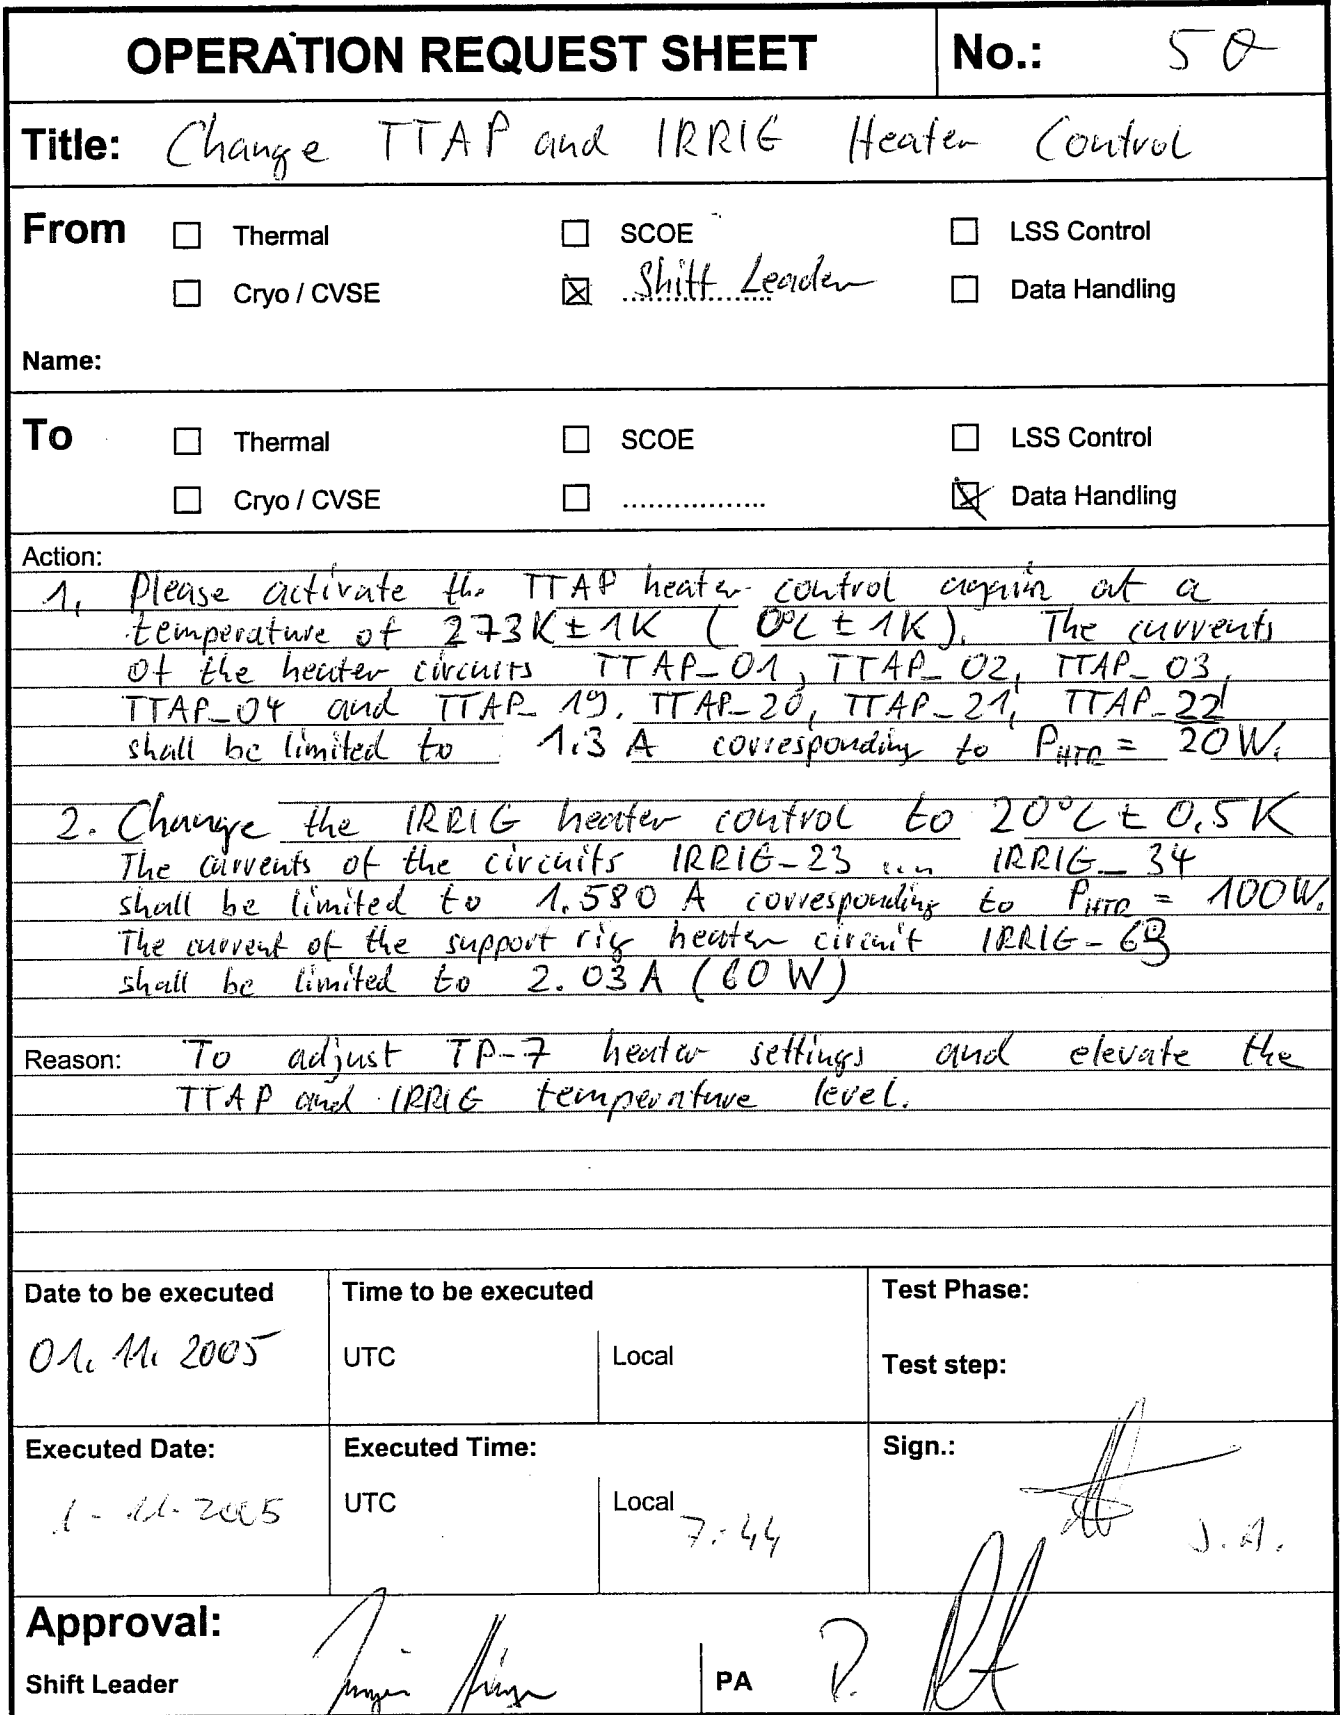 OPERATION REQUEST SHEET No.: 50
Title: Change TTAP and IRRIG Heater Control
From ☐ Thermal ☐ SCOE ☐ LSS Control
☐ Cryo / CVSE ☒ Shift Leader ☐ Data Handling
Name:
To ☐ Thermal ☐ SCOE ☐ LSS Control
☐ Cryo / CVSE ☐ ................. ☒ Data Handling
Action:
1. Please activate the TTAP heater control again at a
temperature of 273K ± 1K ( 0°C ± 1K). The currents
of the heater circuits TTAP_01, TTAP_02, TTAP_03,
TTAP_04 and TTAP_19, TTAP_20, TTAP_21, TTAP_22
shall be limited to 1.3 A corresponding to PHTR = 20 W.
2. Change the IRRIG heater control to 20°C ± 0.5 K
The currents of the circuits IRRIG-23 ... IRRIG_34
shall be limited to 1.580 A corresponding to PHTR = 100 W.
The current of the support rig heater circuit IRRIG-69
shall be limited to 2.03 A (60 W)
Reason: To adjust TP-7 heater settings and elevate the
TTAP and IRRIG temperature level.
Date to be executed Time to be executed Test Phase:
01. 11. 2005 UTC Local
Test step:
Executed Date: Executed Time: Sign.:
1-11-2005 UTC Local 7:44 J.A.
Approval:
Shift Leader PA P.